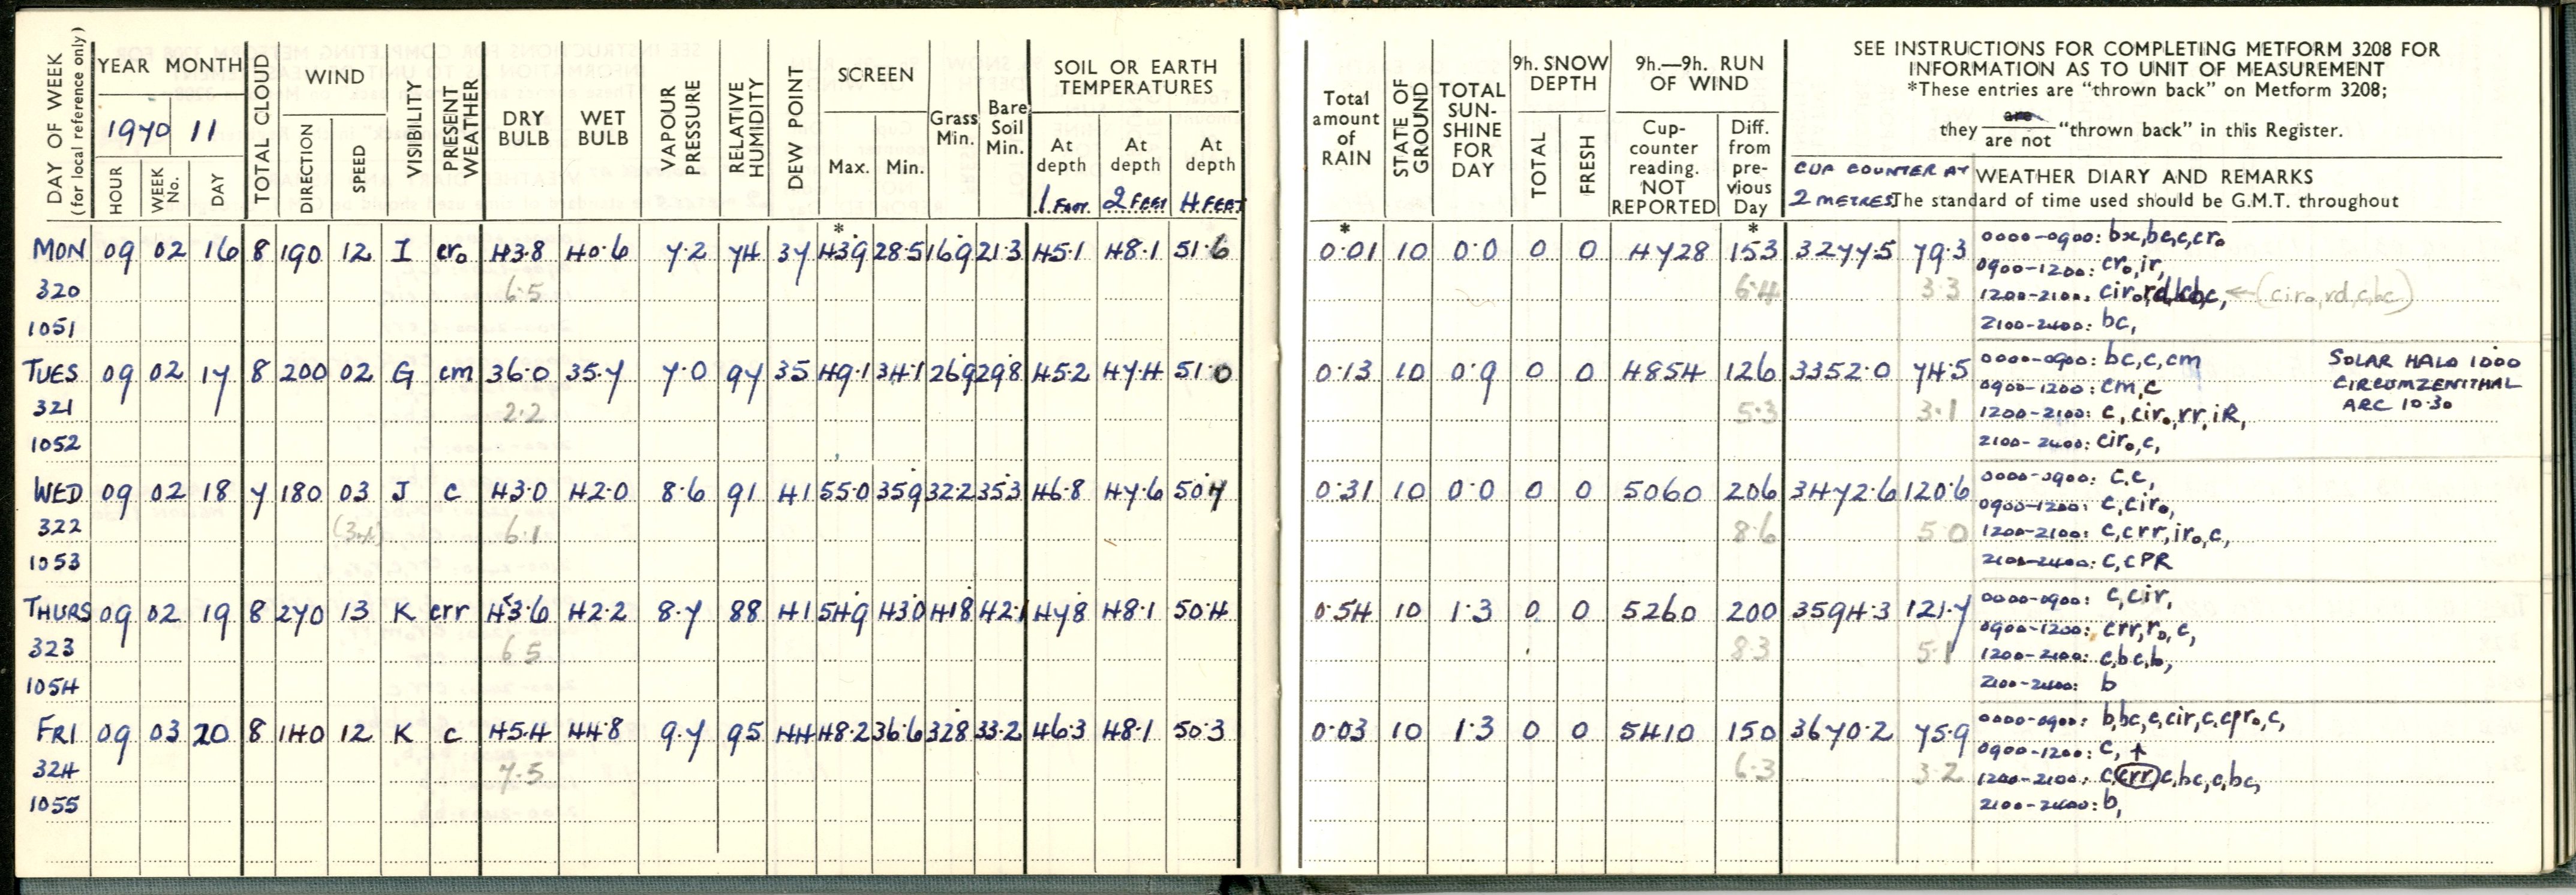 DAY OF WEEK
(for local reference only)
YEAR MONTH
1970 11
HOUR
WEEK No.
DAY
TOTAL CLOUD
WIND
DIRECTION
SPEED
VISIBILITY
PRESENT WEATHER
DRY BULB
WET BULB
VAPOUR PRESSURE
RELATIVE HUMIDITY
DEW POINT
SCREEN
Max. Min.
Grass Min.
Bare Soil Min.
SOIL OR EARTH TEMPERATURES
At depth At depth At depth
1 FOOT 2 FEET 4 FEET
Total amount of RAIN
STATE OF GROUND
TOTAL SUN-SHINE FOR DAY
9h. SNOW DEPTH
TOTAL
FRESH
9h.—9h. RUN OF WIND
Cup-counter reading. NOT REPORTED
Diff. from pre-vious Day
SEE INSTRUCTIONS FOR COMPLETING METFORM 3208 FOR
INFORMATION AS TO UNIT OF MEASUREMENT
*These entries are "thrown back" on Metform 3208;
they are / are not "thrown back" in this Register.
CUP COUNTER AT
2 METRES
WEATHER DIARY AND REMARKS
The standard of time used should be G.M.T. throughout
* * *
MON 09 02 16 8 190 12 I cr₀ 43.8 40.6 7.2 74 37 43.9 28.5 16.9 21.3 45.1 48.1 51.6 0.01 10 0.0 0 0 4728 153 3277.5 79.3 0000-0900: bx,bc,c,cr₀
0900-1200: cr₀,ir,
320 6.5 6.4 3.3 1200-2100: cir₀,rd,c,bc, ← (cir₀,rd,c,bc)
1051 2100-2400: bc,
TUES 09 02 17 8 200 02 G cm 36.0 35.7 7.0 97 35 49.1 34.1 26.9 29.8 45.2 47.4 51.0 0.13 10 0.9 0 0 4854 126 3352.0 74.5 0000-0900: bc,c,cm SOLAR HALO 1000
0900-1200: cm,c CIRCUMZENITHAL
321 2.2 5.3 3.1 1200-2100: c,cir₀,rr,iR, ARC 10.30
1052 2100-2400: cir₀,c,
WED 09 02 18 7 180 03 J c 43.0 42.0 8.6 91 41 55.0 35.9 32.2 35.3 46.8 47.6 50.7 0.31 10 0.0 0 0 5060 206 3472.6 120.6 0000-0900: c,c,
0900-1200: c,cir₀,
322 6.1 8.6 5.0 1200-2100: c,crr,ir₀,c,
1053 2100-2400: c,cPR
THURS 09 02 19 8 270 13 K crr 43.6 42.2 8.7 88 41 54.9 43.0 41.8 42.1 47.8 48.1 50.4 0.54 10 1.3 0 0 5260 200 3594.3 121.7 0000-0900: c,cir,
0900-1200: crr,r₀,c,
323 6.5 8.3 5.1 1200-2100: c,bc,b,
1054 2100-2400: b
FRI 09 03 20 8 140 12 K c 45.4 44.8 9.7 95 44 48.2 36.6 32.8 33.2 46.3 48.1 50.3 0.03 10 1.3 0 0 5410 150 3670.2 75.9 0000-0900: b,bc,c,cir,c,cpr₀,c,
0900-1200: c,
324 7.5 6.3 3.2 1200-2100: c,crr,c,bc,c,bc,
1055 2100-2400: b,